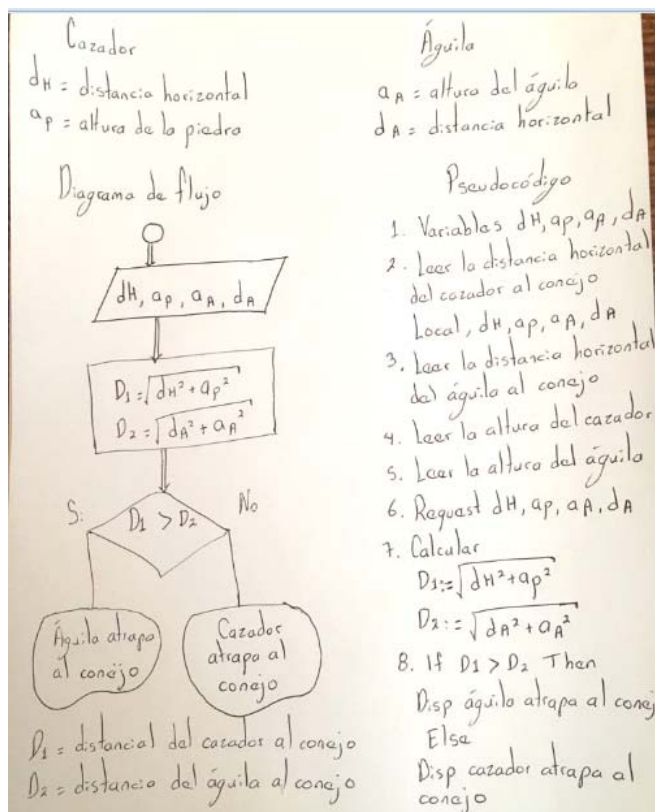 Cazador
dH = distancia horizontal
aP = altura de la piedra
Diagrama de flujo
dH, aP, aA, dA
D1 = √dH² + aP²
D2 = √dA² + aA²
Si
D1 > D2
No
Águila atrapa
al conejo
Cazador
atrapa al
conejo
D1 = distancial del cazador al conejo
D2 = distancia del águila al conejo
Águila
aA = altura del águila
dA = distancia horizontal
Pseudocódigo
1. Variables dH, aP, aA, dA
2. Leer la distancia horizontal
del cazador al conejo
Local, dH, aP, aA, dA
3. Leer la distancia horizontal
del águila al conejo
4. Leer la altura del cazador
5. Leer la altura del águila
6. Request dH, aP, aA, dA
7. Calcular
D1:=√dH²+aP²
D2:=√dA²+aA²
8. If D1 > D2 Then
Disp águila atrapa al conej
Else
Disp cazador atrapa al
conejo